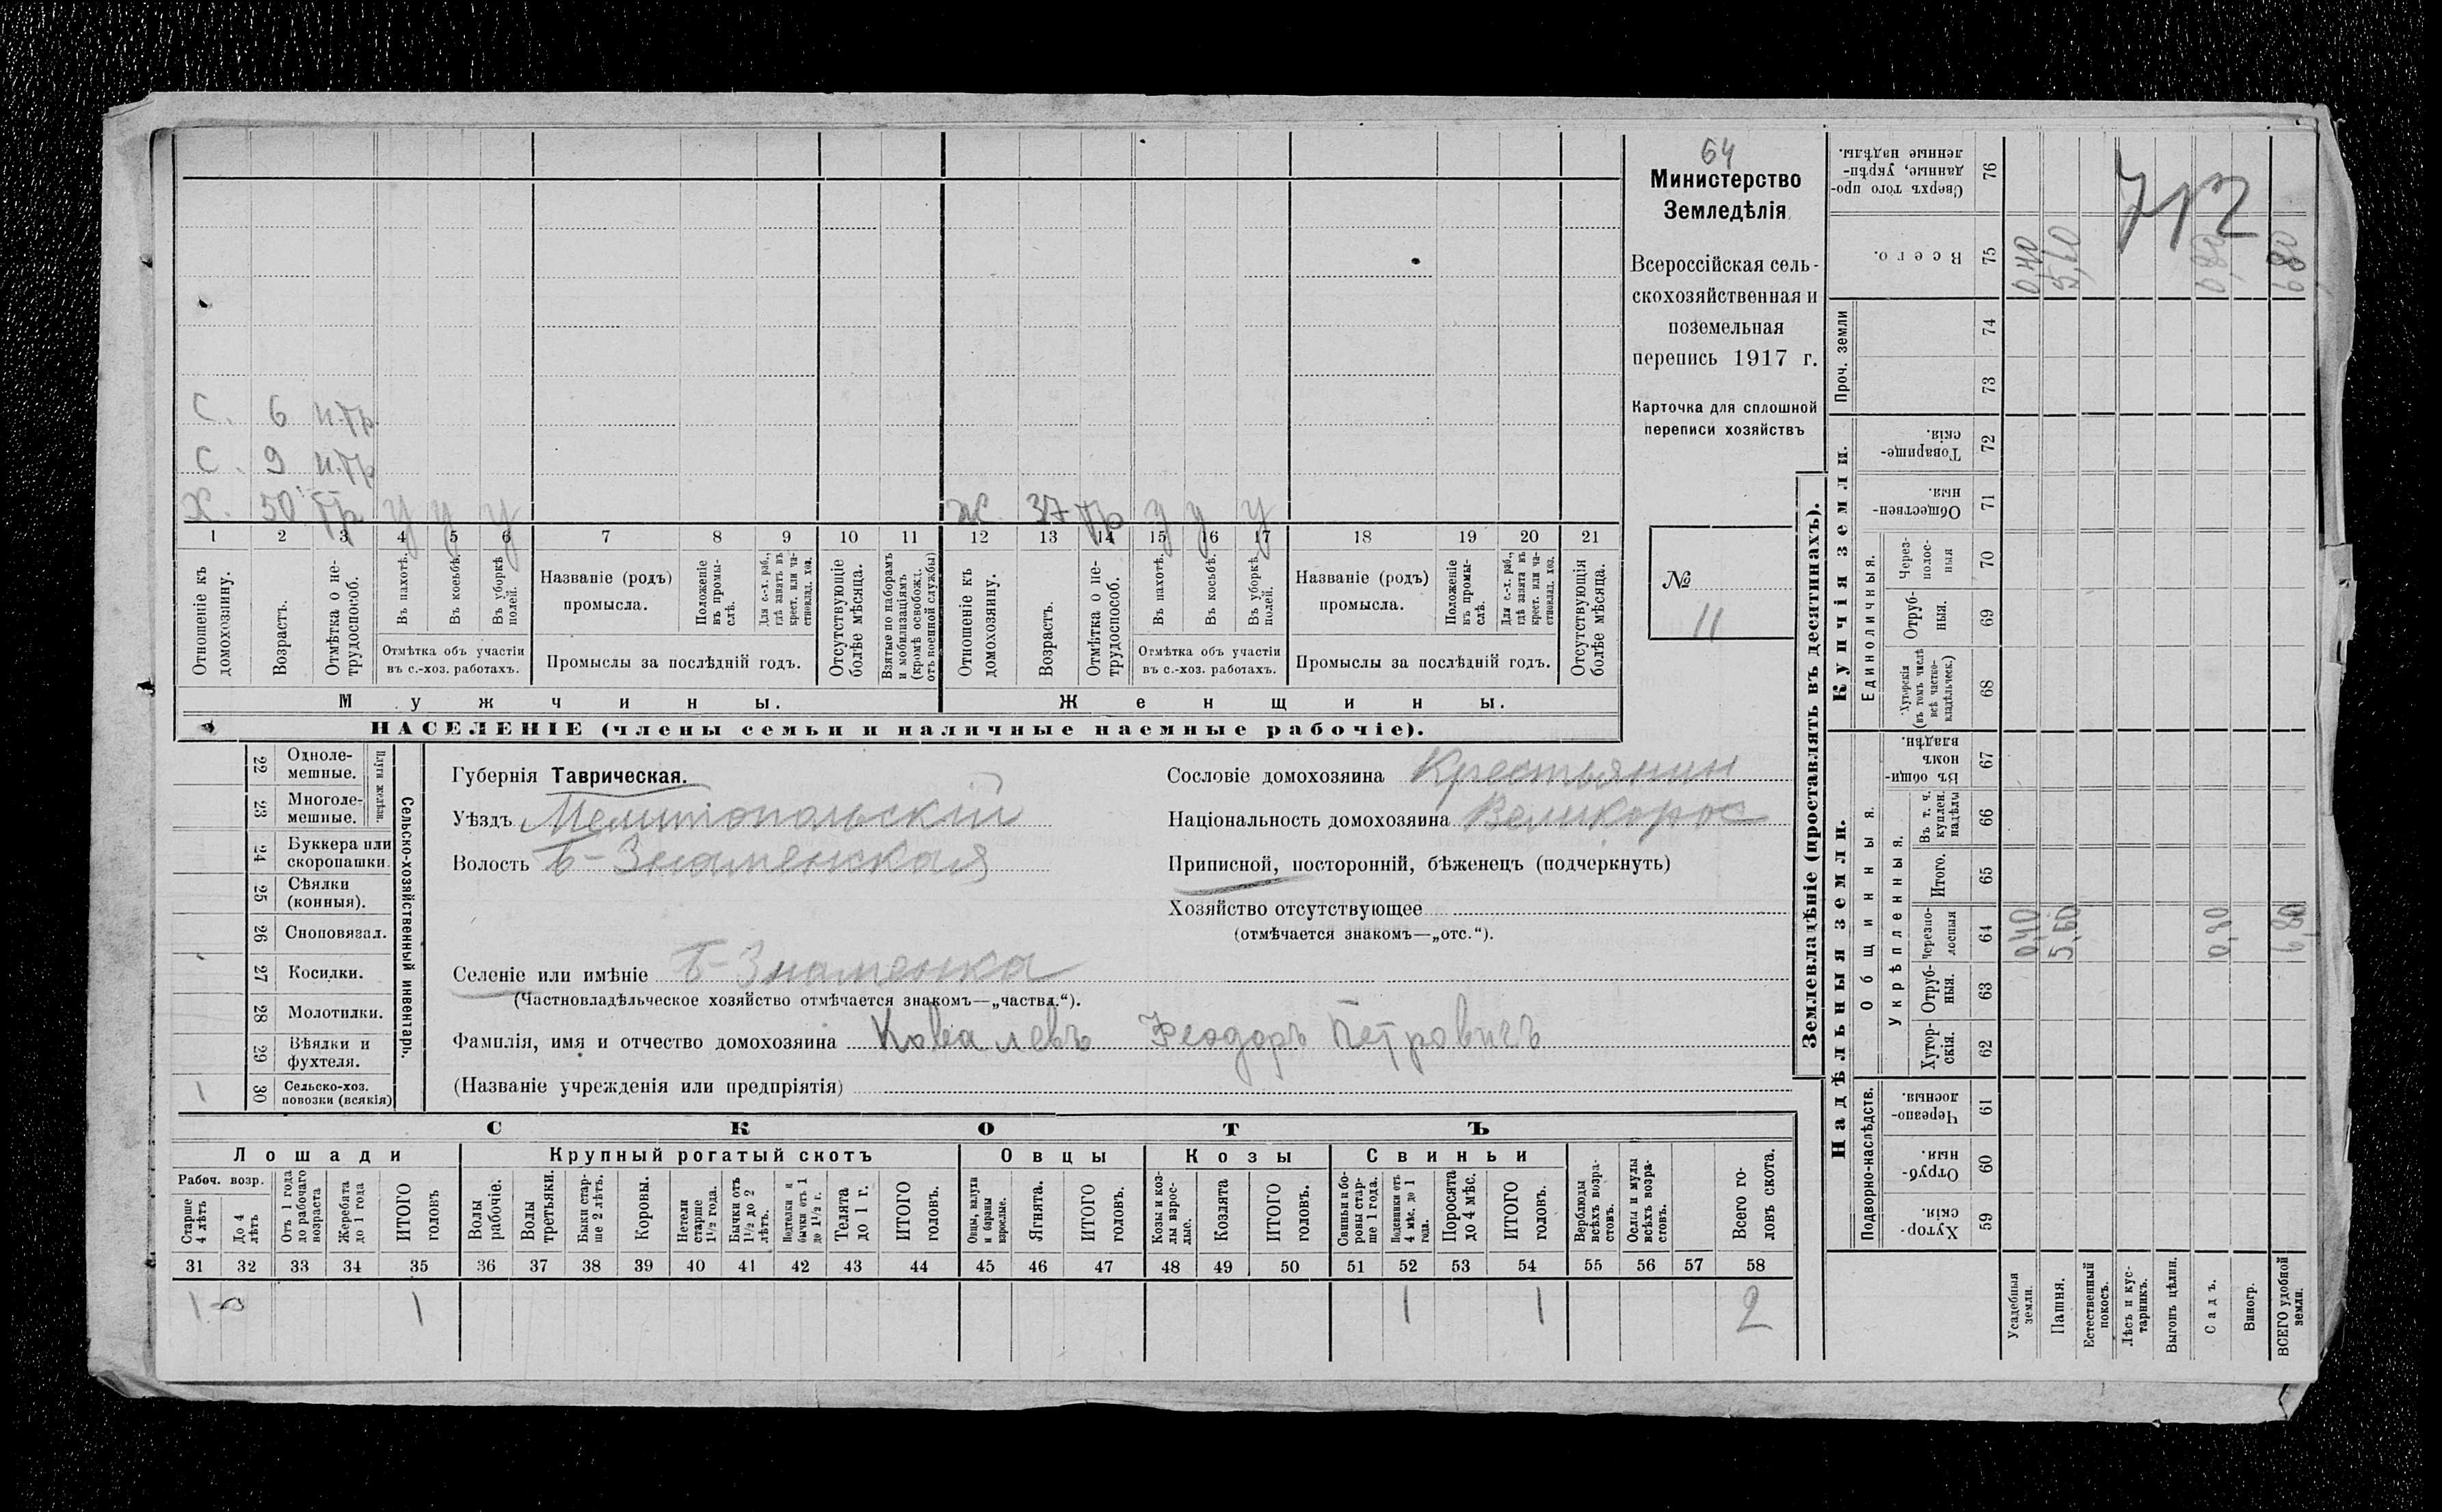 64
Министерство
Земледѣлія
Всероссійская сель-
скохозяйственная и
поземельная
перепись 1917 г.
Карточка для сплошной
переписи хозяйствъ
№
11
С. 6 н.тр.
С. 9 н.тр
Х. 50 тр у у у Ж. 37 тр у у у
1 2 3 4 5 6 7 8 9 10 11 12 13 14 15 16 17 18 19 20 21
Отношеніе къ домохозяину.
Возрастъ.
Отмѣтка о не-трудоспособ.
Въ пахотѣ.
Въ косьбѣ.
Въ уборкѣ полей.
Отмѣтка объ участіи
въ с.-хоз. работахъ.
Названіе (родъ)
промысла.
Положеніе въ промы-слѣ.
Для с.-х. раб., гдѣ занятъ въ крест. или ча-стновлад. хоз.
Промыслы за послѣдній годъ.
Отсутствующіе болѣе мѣсяца.
Взятые по наборамъ и мобилизаціямъ (кромѣ освобожд. отъ военной службы)
Отношеніе къ домохозяину.
Возрастъ.
Отмѣтка о не-трудоспособ.
Въ пахотѣ.
Въ косьбѣ.
Въ уборкѣ полей.
Отмѣтка объ участіи
въ с.-хоз. работахъ.
Названіе (родъ)
промысла.
Положеніе въ промы-слѣ.
Для с.-х. раб., гдѣ занята въ крест. или ча-стновлад. хоз.
Промыслы за послѣдній годъ.
Отсутствующія болѣе мѣсяца.
Мужчины. Женщины.
НАСЕЛЕНІЕ (члены семьи и наличные наемные рабочіе).
22 Одноле-мешные.
23 Многоле-мешные.
Плуги желѣзн.
24 Буккера или скоропашки.
25 Сѣялки (конныя).
26 Сноповязал.
27 Косилки.
28 Молотилки.
29 Вѣялки и фухтеля.
1 30 Сельско-хоз. повозки (всякія)
Сельско-хозяйственный инвентарь.
Губернія Таврическая.
Уѣздъ Мелитопольскій
Волость Б-Знаменская
Селеніе или имѣніе Б-Знаменка
(Частновладѣльческое хозяйство отмѣчается знакомъ—„частвл.“).
Фамилія, имя и отчество домохозяина Ковалевъ Феодоръ Петровичъ
(Названіе учрежденія или предпріятія)
Сословіе домохозяина Крестьянин
Національность домохозяина Великорос
Приписной, посторонній, бѣженецъ (подчеркнуть)
Хозяйство отсутствующее
(отмѣчается знакомъ—„отс.“).
СКОТЪ
Лошади Крупный рогатый скотъ Овцы Козы Свиньи
Рабоч. возр.
Старше 4 лѣтъ
До 4 лѣтъ
Отъ 1 года до рабочаго возраста
Жеребята до 1 года
ИТОГО головъ
Волы рабочіе.
Волы третьяки.
Быки стар-ше 2 лѣтъ.
Коровы.
Нетели старше 1½ года.
Бычки отъ 1½ до 2 лѣтъ.
Подтелки и бычки отъ 1 до 1½ г.
Телята до 1 г.
ИТОГО головъ.
Овцы, валухи и бараны взрослые.
Ягнята.
ИТОГО головъ.
Козы и коз-лы взрос-лые.
Козлята
ИТОГО головъ.
Свиньи и бо-ровы стар-ше 1 года.
Подсвинки отъ 4 мѣс. до 1 года.
Поросята до 4 мѣс.
ИТОГО головъ.
Верблюды всѣхъ возра-стовъ.
Ослы и мулы всѣхъ возра-стовъ.
Всего го-ловъ скота.
31 32 33 34 35 36 37 38 39 40 41 42 43 44 45 46 47 48 49 50 51 52 53 54 55 56 57 58
1 1 1 1 2
Землевладѣніе (проставлять въ десятинахъ).
712
Сверхъ того про-данные, укрѣп-ленные надѣлы. 76
Всего. 75 0,40 5,60 0,80 6,80
Проч. земли 74
73
Купчія земли.
Товарище-скія. 72
Обществен-ныя. 71
Единоличныя.
Через-полос-ныя 70
Отруб-ныя. 69
Хуторскія (въ томъ числѣ всѣ частно-владѣльческ.) 68
Надѣльныя земли.
Общинныя.
Въ общи-номъ владѣн. 67
Укрѣпленныя.
Въ т. ч. куплен. надѣлы 66
Итого. 65
Черезпо-лосныя 64 0,40 5,60 0,80 6,80
Отруб-ныя. 63
Хутор-скія. 62
Подворно-наслѣдств.
Черезпо-лосныя. 61
Отруб-ныя. 60
Хутор-скія. 59
Усадебныя земли.
Пашня.
Естественный покосъ.
Лѣсъ и кус-тарникъ.
Выгонъ цѣлин.
Садъ.
Виногр.
ВСЕГО удобной земли.